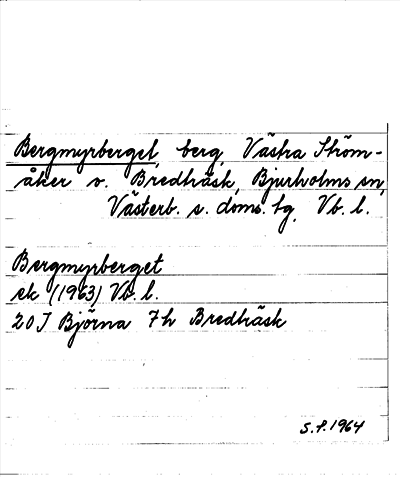 Bergmyrberget, berg, Västra Ström-
åker o. Bredträsk, Bjurholms sn,
Västerb. s. doms. tg, Vb. l.
Bergmyrberget
ek (1963) Vb. l.
20 J Björna 7h Bredträsk
S.F. 1964